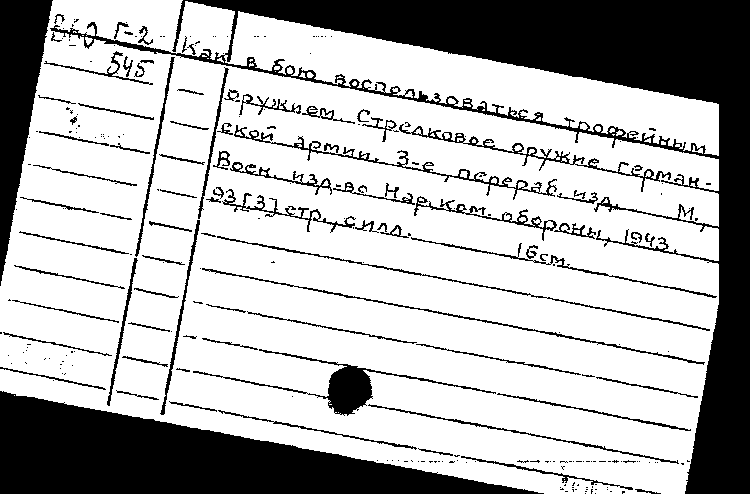 Г-2
545
Как в бою воспользоваться трофейным
оружием. Стрелковое оружие герман-
ской армии. 3-е, перераб. изд. М.,
Воен. изд-во Нар. ком. обороны, 1943.
93,[3] стр., с илл. 16см.